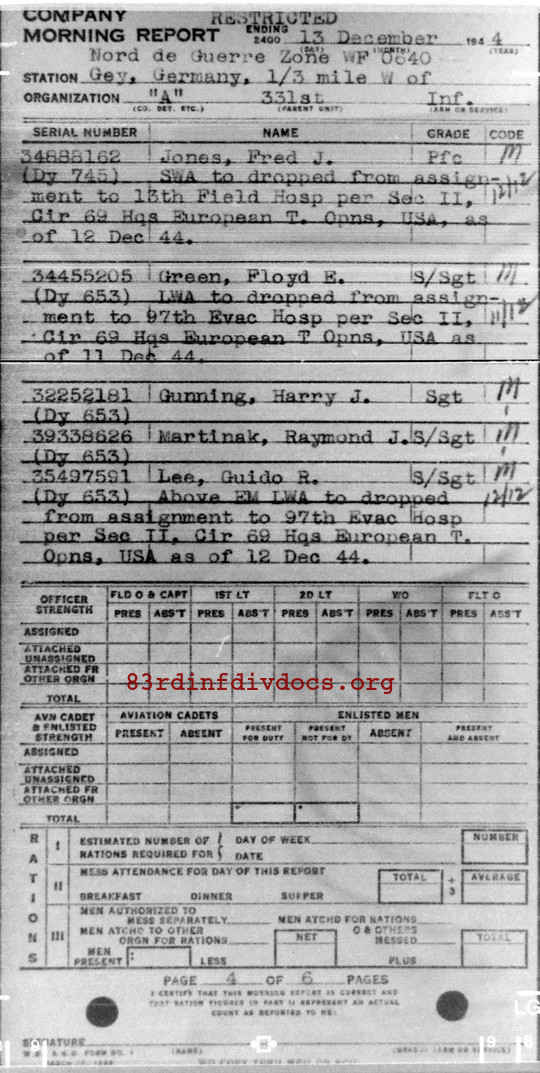 COMPANY RESTRICTED
MORNING REPORT ENDING 2400 13 December 1944
(DAY) (MONTH) (YEAR)
Nord de Guerre Zone WF 0640
STATION Gey, Germany, 1/3 mile W of
ORGANIZATION "A" 331st Inf.
(CO. DET. ETC.) (PARENT UNIT) (ARM OR SERVICE)
SERIAL NUMBER NAME GRADE CODE
34888162 Jones, Fred J. Pfc M
(Dy 745) SWA to dropped from assign- 12/12
ment to 13th Field Hosp per Sec II,
Cir 69 Hqs European T. Opns, USA, as
of 12 Dec 44.
34455205 Green, Floyd E. S/Sgt M
(Dy 653) LWA to dropped from assign-
ment to 97th Evac Hosp per Sec II, 11/12
Cir 69 Hqs European T Opns, USA as
of 11 Dec 44.
32252181 Gunning, Harry J. Sgt M
(Dy 653)
39338626 Martinak, Raymond J. S/Sgt M
(Dy 653)
35497591 Lee, Guido R. S/Sgt M
(Dy 653) Above EM LWA to dropped 12/12
from assignment to 97th Evac Hosp
per Sec II, Cir 69 Hqs European T.
Opns, USA as of 12 Dec 44.
OFFICER STRENGTH FLD O & CAPT 1ST LT 2D LT WO FLT O
PRES ABS'T PRES ABS'T PRES ABS'T PRES ABS'T PRES ABS'T
ASSIGNED
ATTACHED UNASSIGNED
ATTACHED FR OTHER ORGN
83rdinfdivdocs.org
TOTAL
AVN CADET & ENLISTED STRENGTH AVIATION CADETS ENLISTED MEN
PRESENT ABSENT PRESENT FOR DUTY PRESENT NOT FOR DY ABSENT PRESENT AND ABSENT
ASSIGNED
ATTACHED UNASSIGNED
ATTACHED FR OTHER ORGN
TOTAL
RATIONS
I ESTIMATED NUMBER OF RATIONS REQUIRED FOR DAY OF WEEK DATE NUMBER
II MESS ATTENDANCE FOR DAY OF THIS REPORT TOTAL ÷ 3 AVERAGE
BREAKFAST DINNER SUPPER
III MEN AUTHORIZED TO MESS SEPARATELY MEN ATCHD FOR RATIONS
MEN ATCHD TO OTHER ORGN FOR RATIONS NET O & OTHERS MESSED TOTAL
MEN PRESENT LESS PLUS
PAGE 4 OF 6 PAGES
I CERTIFY THAT THIS MORNING REPORT IS CORRECT AND
THAT RATION FIGURES IN PART II REPRESENT AN ACTUAL
COUNT AS REPORTED TO ME:
SIGNATURE
(NAME) (GRADE) (ARM OR SERVICE)